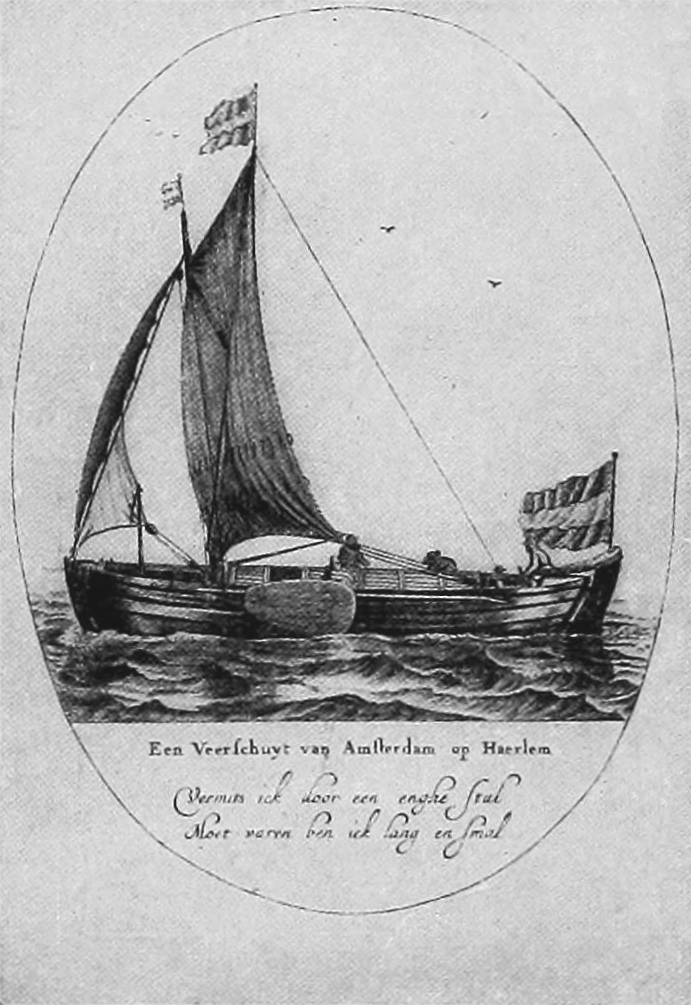 Een Veerſchuyt van Amſterdam op Haerlem
Vermits ick door een enghe ſtal
Moet varen ben ick lang en ſmal